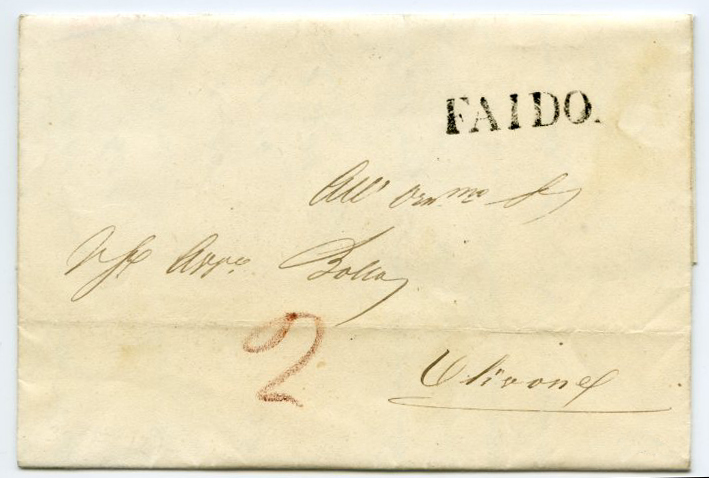 FAIDO.
All' Orn.mo
Avv.o Bolla
2
Olivone